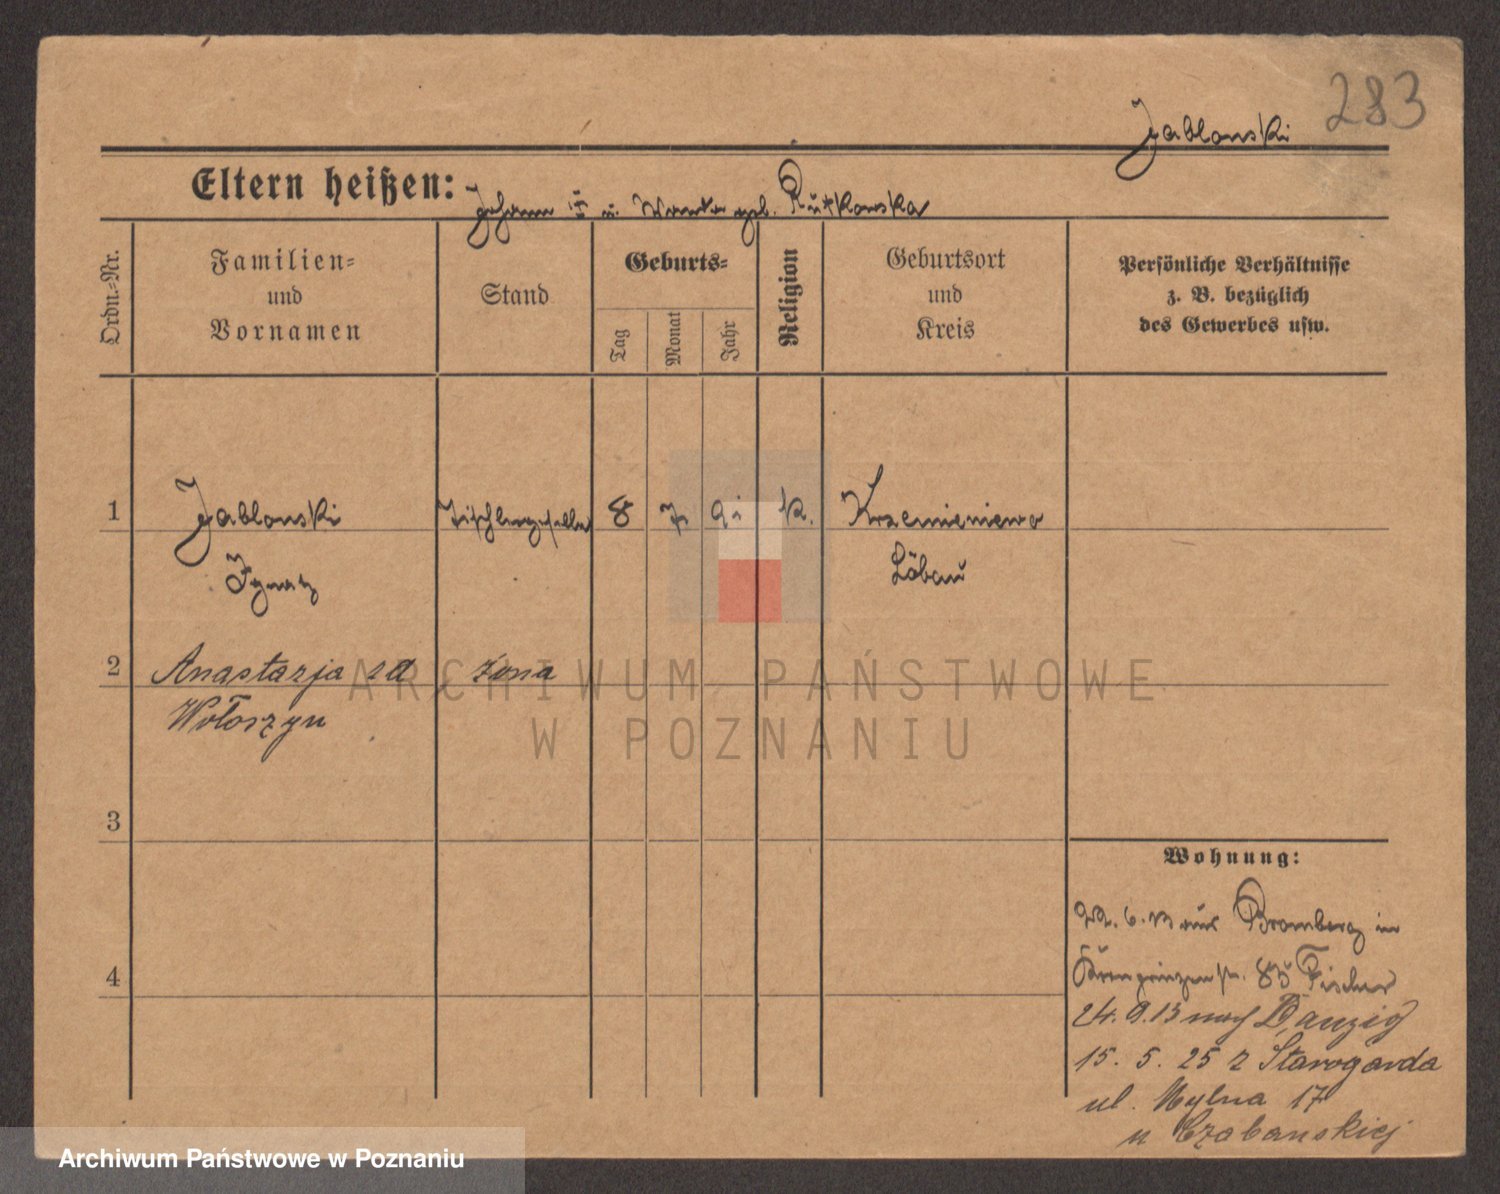 283
Jablonski
Eltern heißen: Johann u. geb. Rutkowska
Ordn.-Nr.
Familien-
und
Vornamen
Stand
Geburts-
Tag
Monat
Jahr
Religion
Geburtsort
und
Kreis
Persönliche Verhältnisse
z. B. bezüglich
des Gewerbes usw.
1 Jablonski Tischlergeselle 8 7 91 k. Krzemieniewo
Ignatz Löbau
2 Anastazja zd żona
Wołoszyn
3
4
Wohnung:
22. 6. 13 aus Bromberg in
Kronprinzenstr. 85 Fischer
24. 9. 13 nach Danzig
15. 5. 25 z Starogarda
ul. Mylna 17
u Czabanskiej
ARCHIWUM PAŃSTWOWE
W POZNANIU
Archiwum Państwowe w Poznaniu